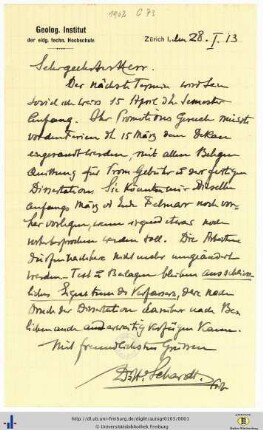 1913 G 73
Geolog. Institut
der eidg. techn. Hochschule
Zürich I, den 28. I. 13
Sehr geehrter Herr.
Der nächste Termin wird sein
so viel als ca. 15 April d. h. Semester
anfang. Ihr Promotions Gesuch müsste
vor den Ferien d. h. 15 März dem Dekan
eingesandt werden, mit allen Belegen
Quittung für Prom Gebühr & der fertigen
Dissertation. Sie könnten mir dieselben
anfangs März od Ende Februar noch vor
her vorlegen, wenn irgend etwas noch
werden soll. Die Arbeiten
dürfen nachher nicht mehr umgeändert
werden. Text & Beilagen bleiben ausschliess
liches Eigentum des Verfassers, der nach
Druck der Dissertation darüber nach Be
lieben auch anderweitig verfügen kann.
Mit freundlichsten Grüssen
Dr. H. Schardt.
© Universitätsbibliothek Freiburg